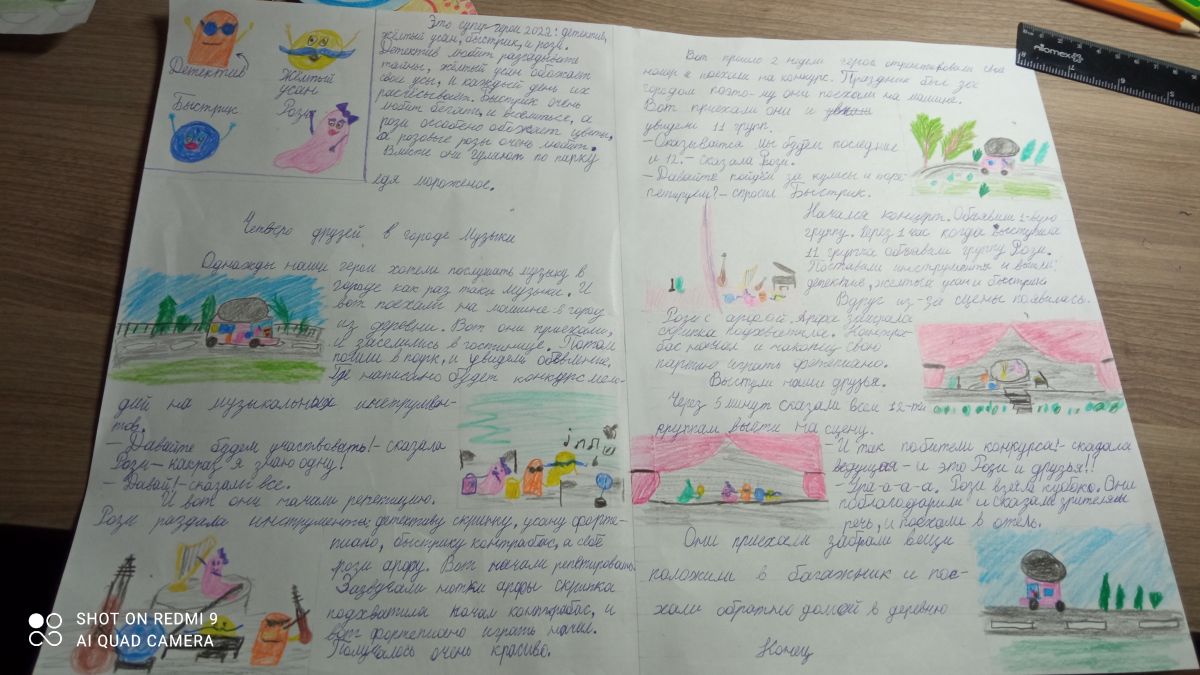 Детектив
Жёлтый
усан
Быстрик
Рози
Это супер герои 2022: детектив,
жёлтый усан, быстрик, и рози.
Детектив любит разгадывать
тайны, жёлтый усан обожает
свои усы, и каждый день их
расчёсывает. Быстрик очень
любит бегать, и веселиться, а
рози особено обожает цветы,
а розовые розы очень любит.
Вместе они гуляют по парку
едя мороженое.
Четверо друзей в городе Музыки
Однажды наши герои хотели послушать музыку в
городе как раз таки музыки. И
вот поехали на машине в город
из деревни. Вот они приехали,
и заселились в гостинице. Потом
пошли в парк, и увидели обевление.
Где написано будет конкурс мело-
дий на музыкальных инструмен-
тов.
- Давайте будем участвовать! - сказала
Рози - как раз я знаю одну!
- Давай! - сказали все.
И вот они начали репетицию.
Рози раздала инструменты: детективу скрипку, усану форте-
пиано, быстрику контрабас, а себе
рози арфу. Вот начали репетировать.
Зазвучали нотки арфы скрипка
подхватила начал контрабас, и
вот фортепиано играть начал.
Получалось очень красиво.
Вот прошло 2 недели герои отрепетировали свой
номер и поехали на конкурс. Праздник был за
городом поэто-му они поехали на машине.
Вот приехали они и
увидели 11 групп.
- Оказывается мы будем последние
и 12. - сказала Рози.
- Давайте пойдём за кулисы и поре-
петируем? - спросил Быстрик.
Начался концерт. Обьявили 1-вую
группу. Через 1 час когда выступила
11 группа объявили группу Рози.
Поставили инструменты и вышли:
детектив, жёлтый усан и быстрик.
Вдруг из-за сцены появилась
Рози с арфой. Арфа заиграла
скрипка подхватила. Контра-
бас начал и наконец свою
партию играть фортепиано.
Выступили наши друзья.
Через 5 минут сказали всем 12-ти
группам выйти на сцену.
И так победители конкурса! - сказала
ведущая - и это Рози и друзья!!
- Ура-а-а-а. Рози взяла кубок. Они
поблагодарили и сказали зрителям
речь, и поехали в отель.
Они приехали забрали вещи
положили в багажник и пое-
хали обратно домой в деревню
Конец
Attomex
SHOT ON REDMI 9
AI QUAD CAMERA